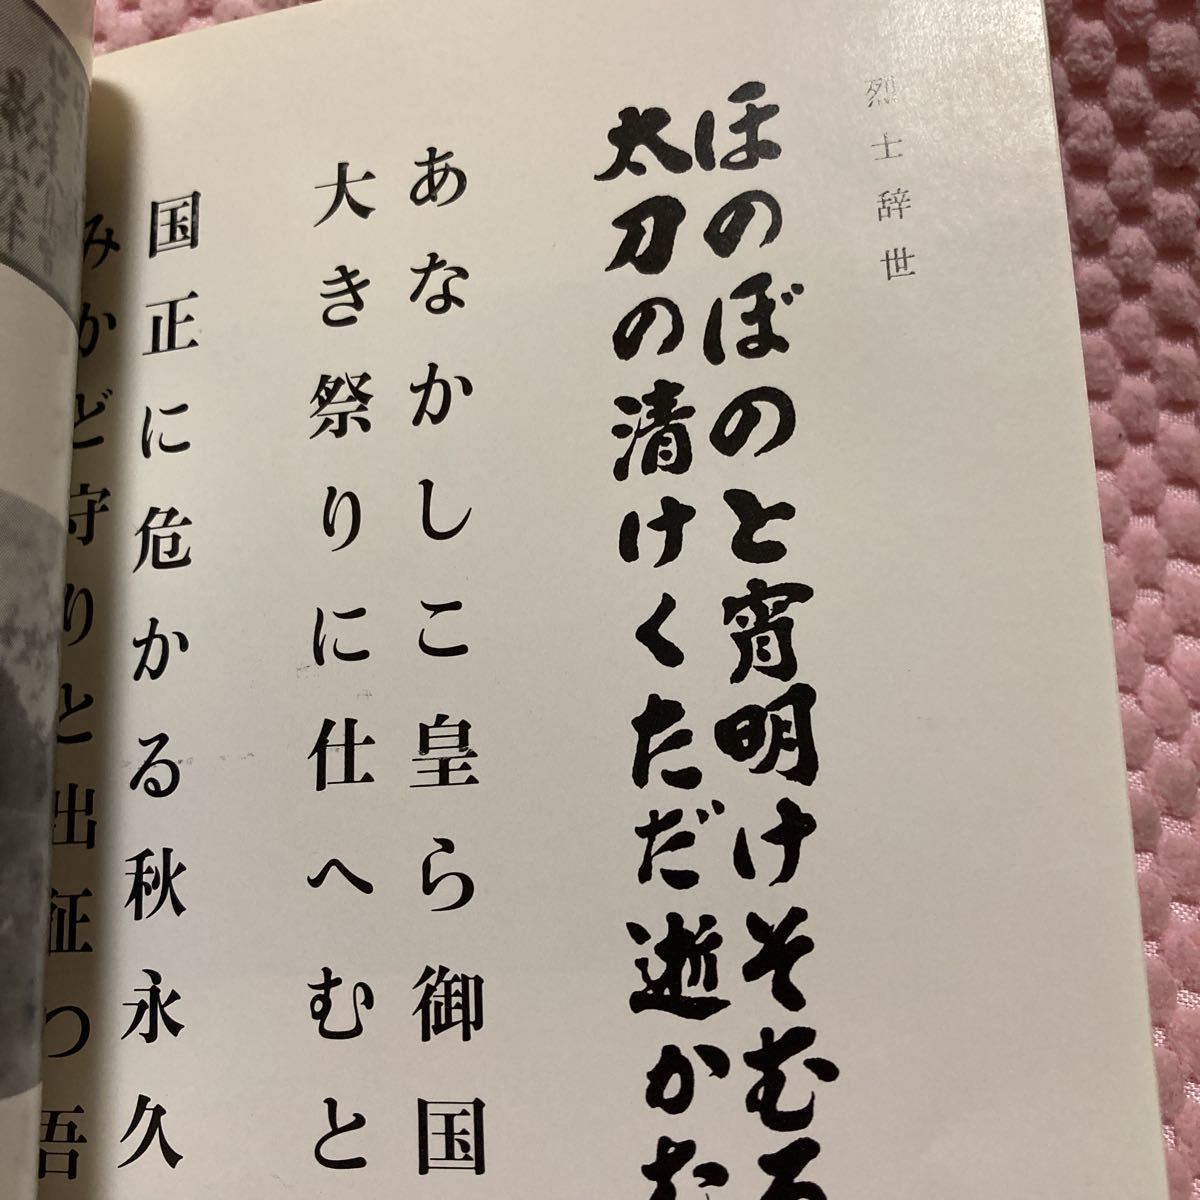 烈士辞世
ほのぼのと宵明けそむる
太刀の清けくただ逝かむ
あなかしこ皇ら御国
大き祭りに仕へむと
国正に危かる秋永久
みかど守りと出征つ吾